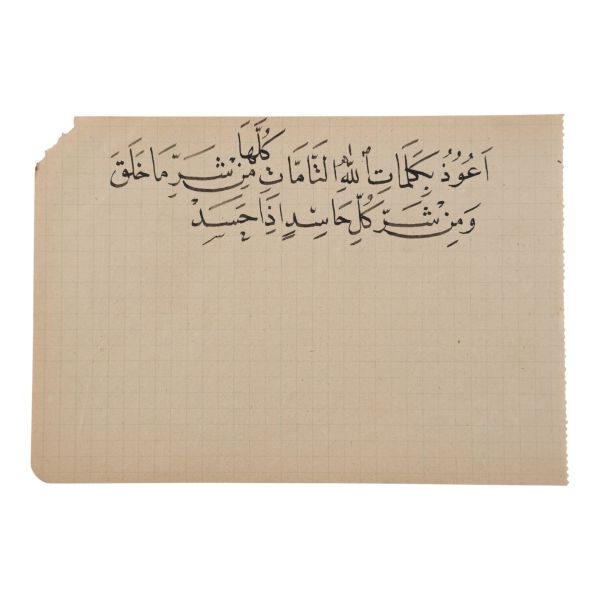 اَعُوُذُ بِكَلَمَاتِ ٱللّٰهِ التَّامَّاتِ كُلَّهَا مِنْ شَرِّ مَا خَلَقَ
وَمِنْ شَرِّ كُلِّ حَاسِدٍ اِذَا حَسَدْ